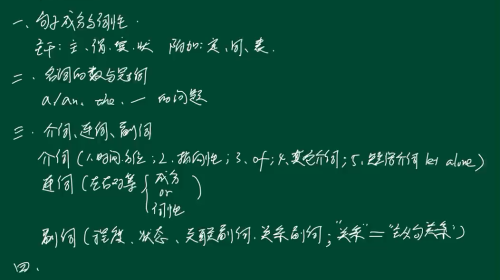 一、句子成分与词性.
主干: 主、谓、宾、状 附加: 定、同、表.
二、名词的数与冠词
a/an、the、一 的问题
三、介词、连词、副词
介词 (1.时间,方位; 2.指向性; 3. of; 4.其它介词; 5. 短语介词 let alone)
连词 (左右对等 { 成分
or
词性 )
副词 (程度、状态、关联副词.关系副词; "关系" = "主从句关系")
四、